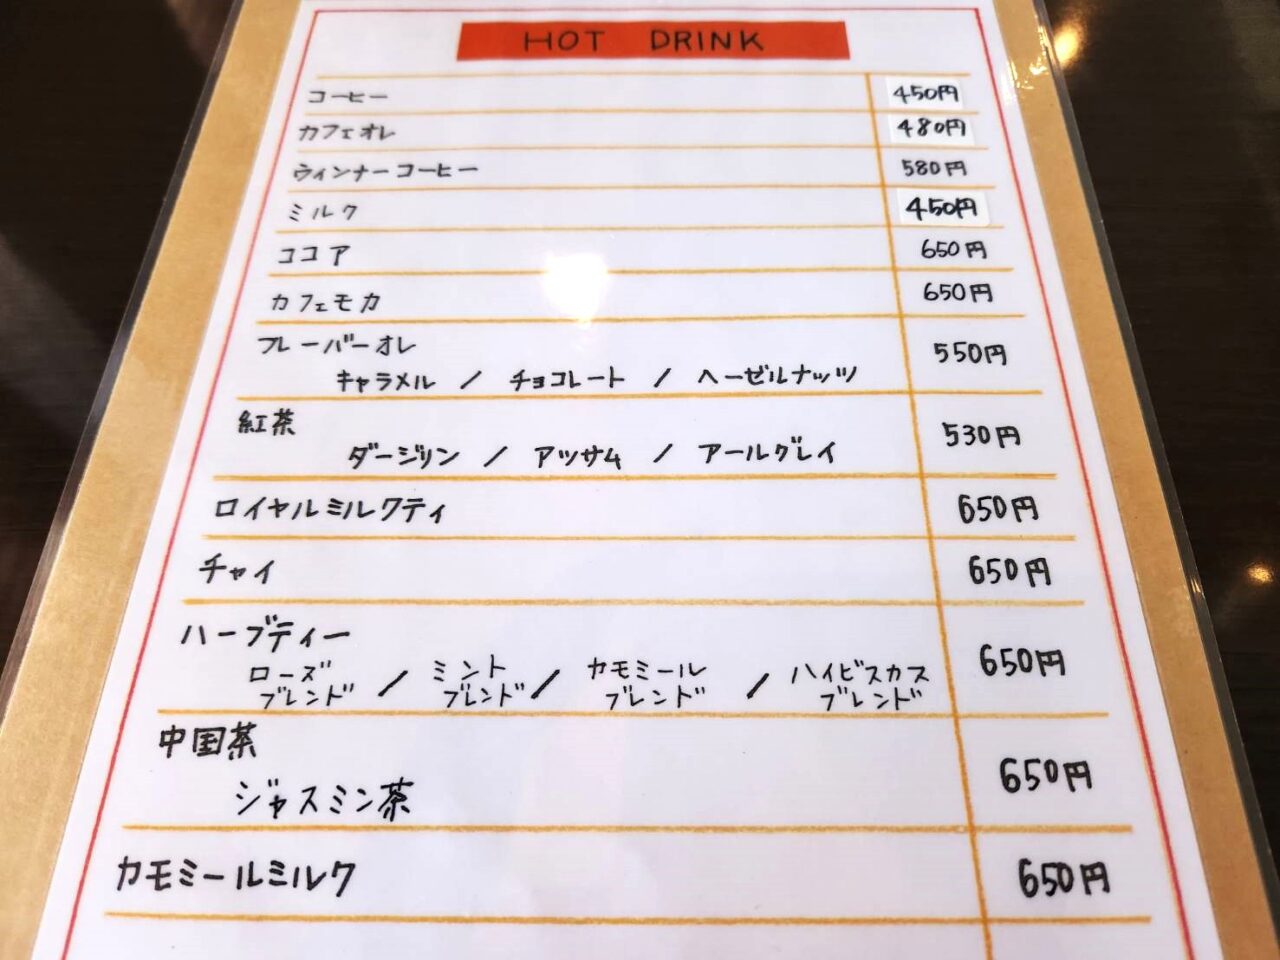 HOT DRINK
コーヒー 450円
カフェオレ 480円
ウィンナーコーヒー 580円
ミルク 450円
ココア 650円
カフェモカ 650円
フレーバーオレ 550円
キャラメル / チョコレート / ヘーゼルナッツ
紅茶 530円
ダージリン / アッサム / アールグレイ
ロイヤルミルクティ 650円
チャイ 650円
ハーブティー 650円
ローズブレンド / ミントブレンド / カモミールブレンド / ハイビスカスブレンド
中国茶 650円
ジャスミン茶
カモミールミルク 650円